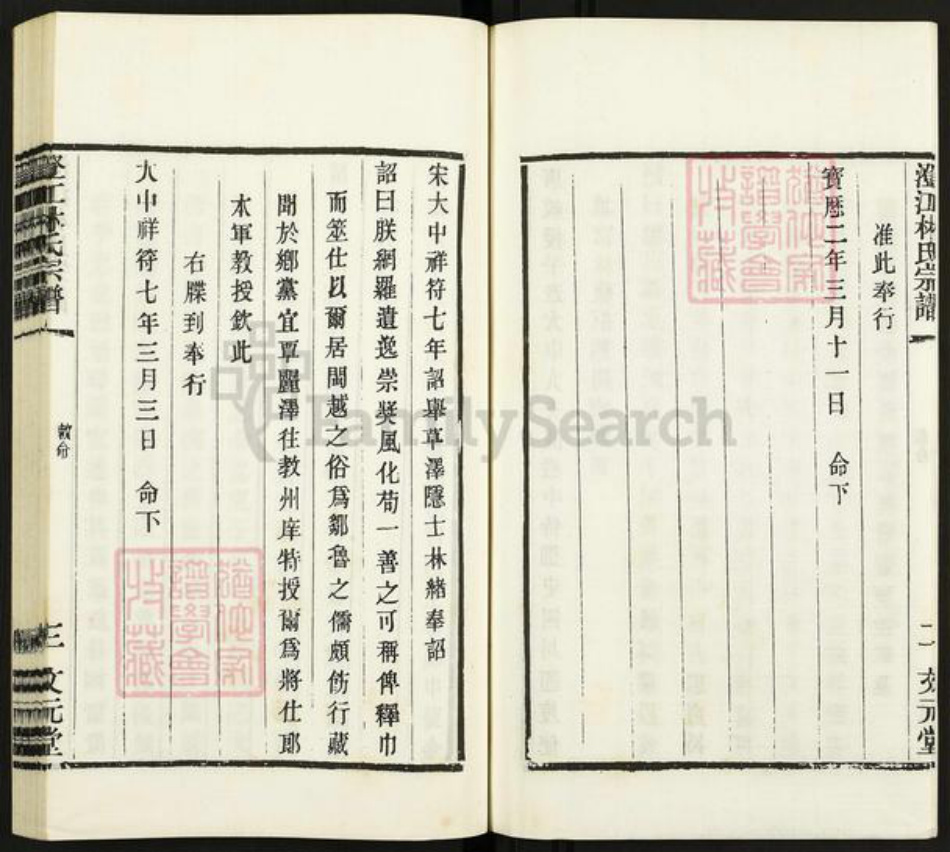 澄江林氏宗譜
準此奉行
寶曆二年三月十一日 命下
二 文元堂
宋大中祥符七年詔舉草澤隱士林緒奉詔
詔曰朕網羅遺逸崇奬風化苟一善之可稱俾釋巾
而筮仕以爾居閩越之俗爲鄒魯之儒頗飭行藏
聞於鄉黨宜覃麗澤往教州庠特授爾爲將仕郎
本軍教授欽此
右牒到奉行
大中祥符七年三月三日 命下
澄江林氏宗譜
敕命
三 文元堂
FamilySearch